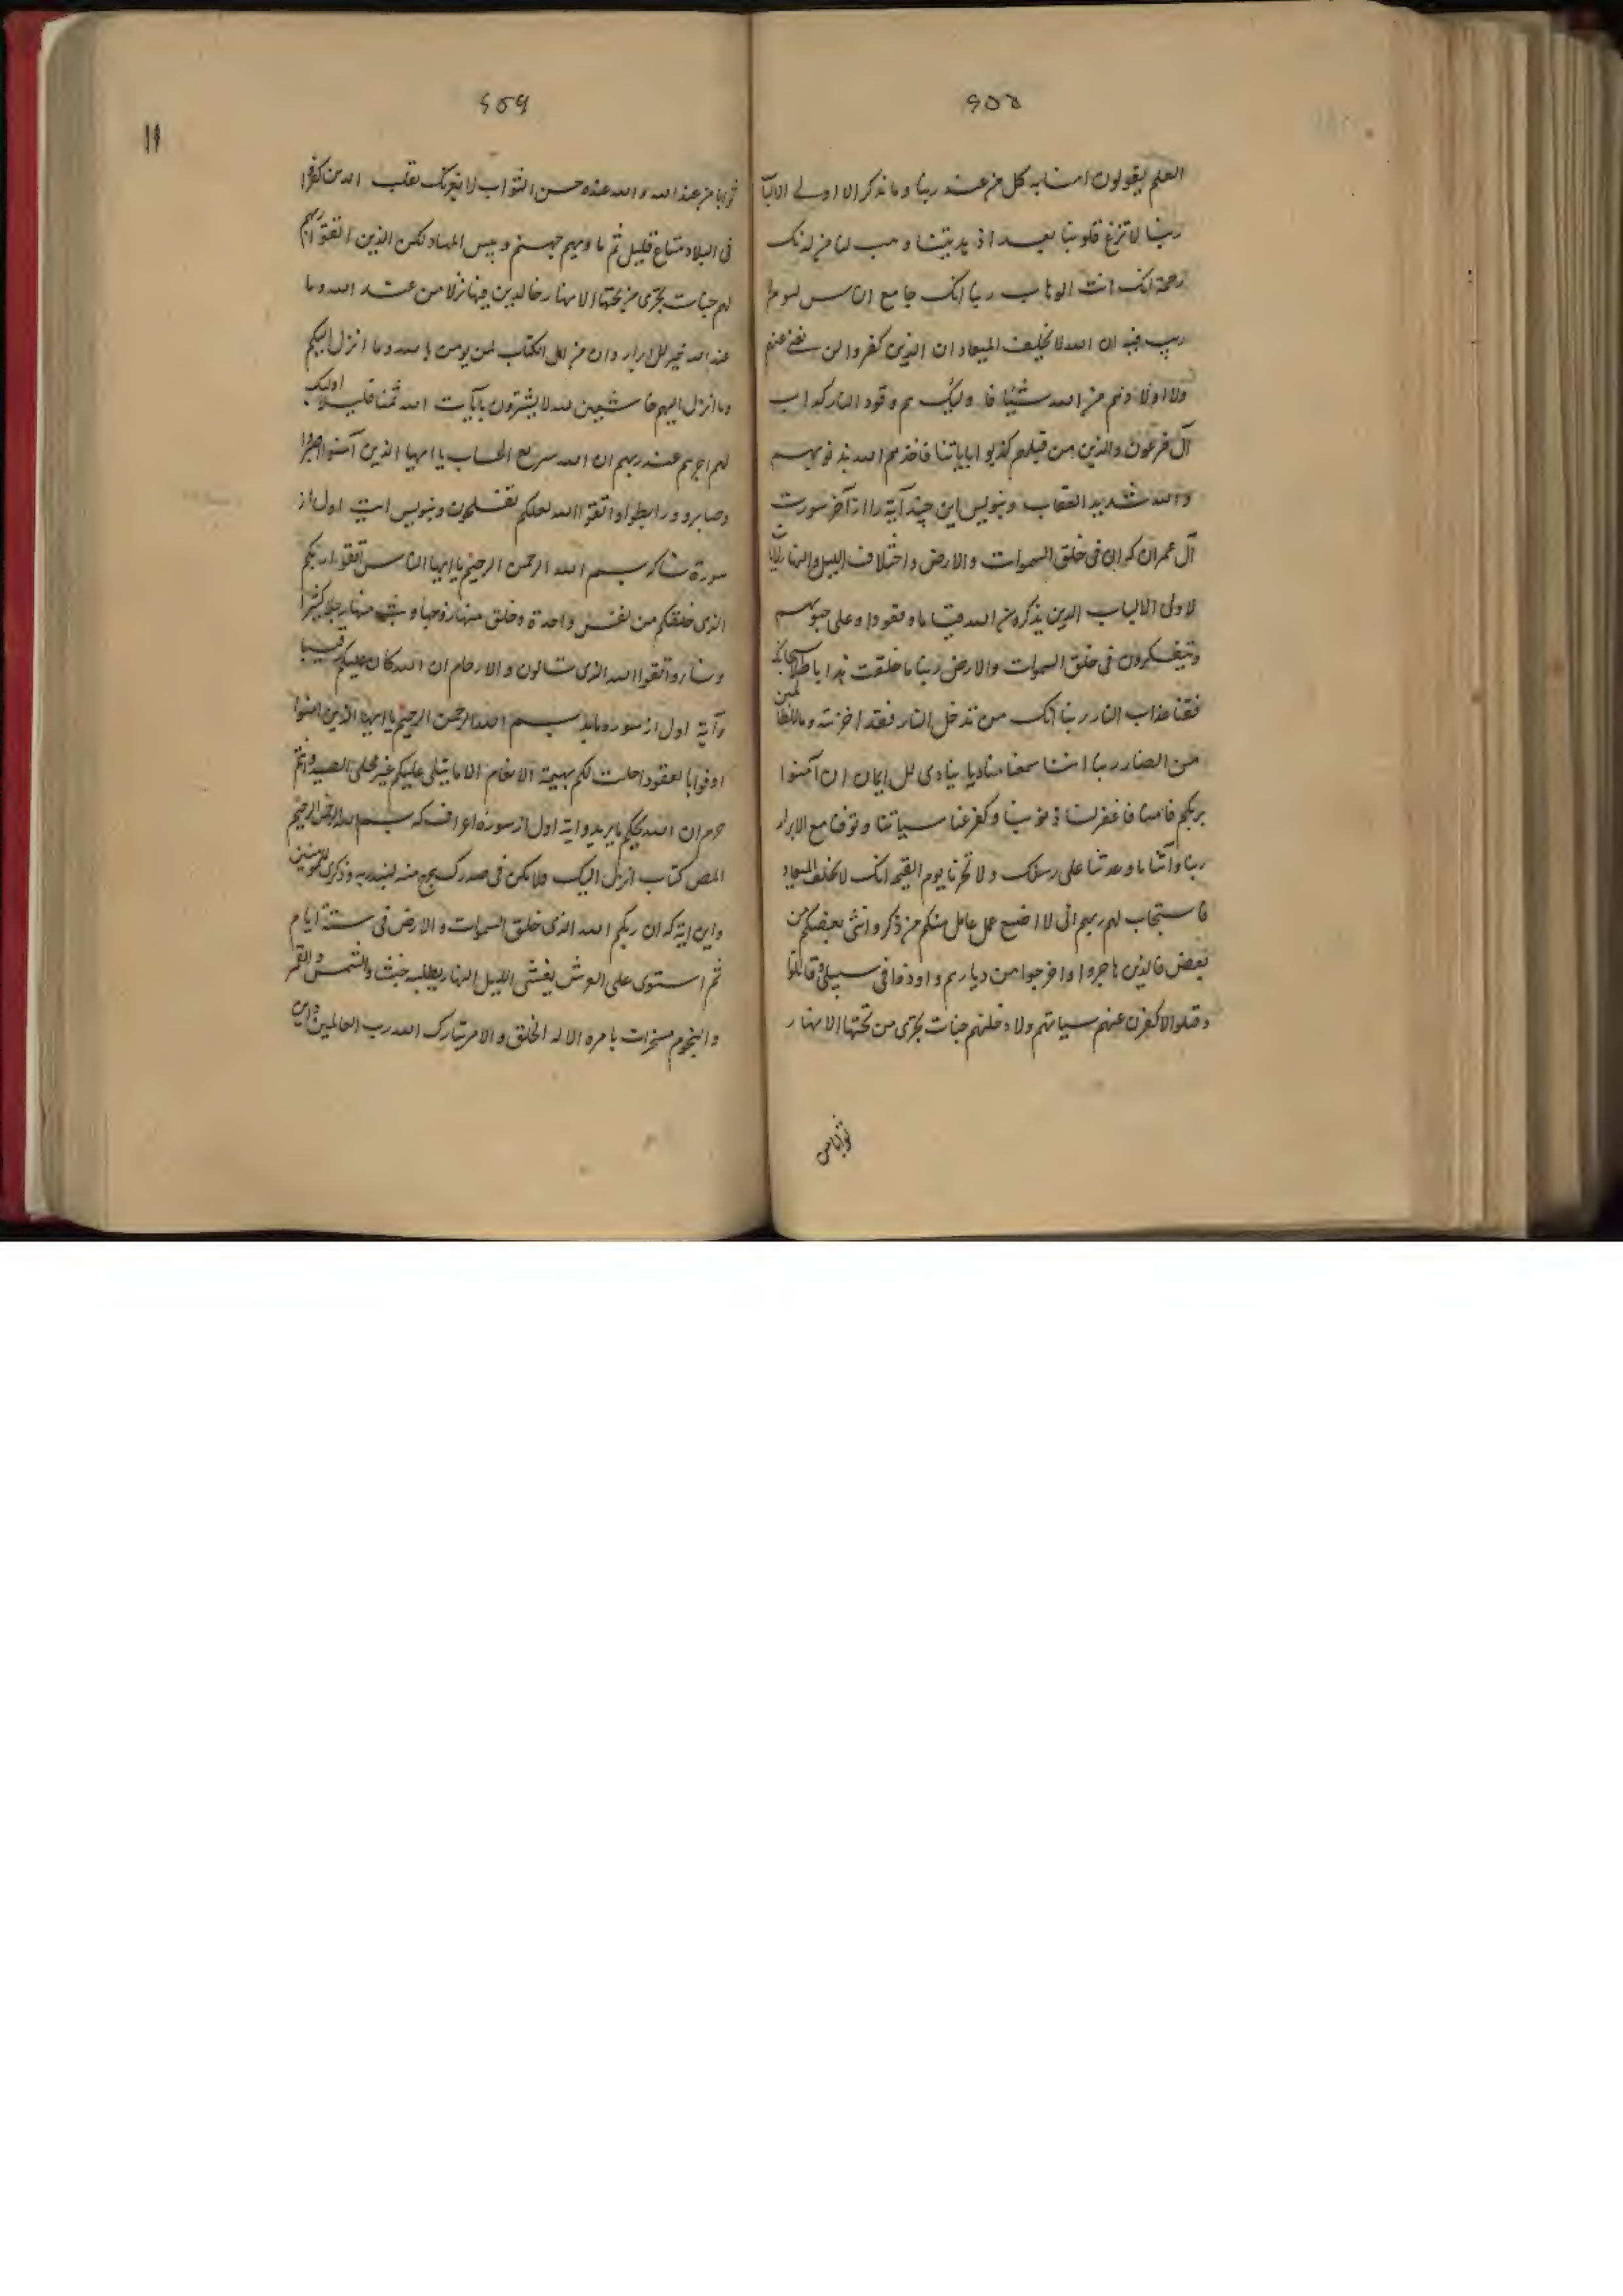 ۶۵۸
العلم یقولون امنا به کل من عند ربنا و ما یذکر الا اولی الالبا
ربنا لا تزغ قلوبنا بعد اذ هدیتنا و هب لنا من لدنک
رحمة انک انت الوهاب ربنا انک جامع الناس لیوم لا
ریب فیه ان الله لا یخلف المیعاد ان الذین کفروا لن تغنی عنهم
ولا اولادهم من الله شیئا فاولیک هم وقود النار کداب
آل فرعون والذین من قبلهم کذبوا بایاتنا فاخذهم الله بذنوبهم
والله شدید العقاب و بنویس این چند آیه را از آخر سورت
آل عمران که ان فی خلق السموات والارض و اختلاف اللیل والنهار لآیات
لاولی الالباب الذین یذکرون الله قیاما و قعودا و علی جنوبهم
و یتفکرون فی خلق السموات والارض ربنا ما خلقت هذا باطلا سبحانک
فقنا عذاب النار ربنا انک من تدخل النار فقد اخزیته و ما للظالمین
من انصار ربنا اننا سمعنا منادیا ینادی للایمان ان آمنوا
بربکم فامنا فاغفر لنا ذنوبنا و کفر عنا سیاتنا و توفنا مع الابرار
ربنا وآتنا ما وعدتنا علی رسلک ولا تخزنا یوم القیمه انک لا تخلف المیعاد
فاستجاب لهم ربهم انی لا اضیع عمل عامل منکم من ذکر و انثی بعضکم من
بعض فالذین هاجروا و اخرجوا من دیارهم و اوذوا فی سبیلی و قاتلوا
وقتلوا لاکفرن عنهم سیاتهم ولادخلنهم جنات تجری من تحتها الانهار
ثوابا من
۶۵۹
ثوابا من عند الله والله عنده حسن الثواب لا یغرنک تقلب الذین کفروا
فی البلاد متاع قلیل ثم ماویهم جهنم و بیس المهاد لکن الذین اتقوا ربهم
لهم جنات تجری من تحتها الانهار خالدین فیها نزلا من عند الله وما
عند الله خیر للابرار وان من اهل الکتاب لمن یومن بالله وما انزل الیکم
وما انزل الیهم خاشعین لله لا یشترون بآیات الله ثمنا قلیلا اولیک
لهم اجرهم عند ربهم ان الله سریع الحساب یا ایها الذین آمنوا اصبروا
وصابرو ورابطوا واتقوا الله لعلکم تفلحون و بنویس آیت اول از
سورة نسا که بسم الله الرحمن الرحیم یا ایها الناس اتقوا ربکم
الذی خلقکم من نفس واحدة وخلق منها زوجها و بث منها رجالا کثیرا
ونساء واتقوا الله الذی تسالون والارحام ان الله کان علیکم رقیبا
وآیة اول از سوره مایده بسم الله الرحمن الرحیم یا ایها الذین امنوا
اوفوا بالعقود احلت لکم بهیمة الانعام الا ما یتلی علیکم غیر محلی الصید وانتم
حرم ان الله یحکم ما یرید و ایة اول از سوره اعراف که بسم الله الرحمن الرحیم
المص کتاب انزل الیک فلا یکن فی صدرک حرج منه لتنذر به وذکری للمومنین
واین ایة که ان ربکم الله الذی خلق السموات والارض فی ستة ایام
ثم استوی علی العرش یغشی اللیل النهار یطلبه حثیثا والشمس والقمر
والنجوم مسخرات بامره الا له الخلق والامر تبارک الله رب العالمین واین